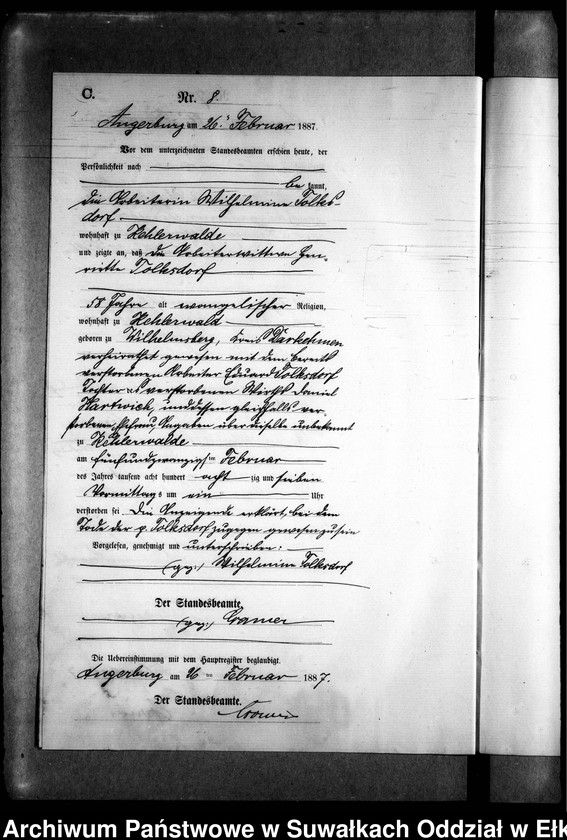 C.
Nr. 8
Angerburg am 26. Februar 1887
Vor dem unterzeichneten Standesbeamten erschien heute, der
Persönlichkeit nach
be kannt,
die Arbeiterin Wilhelmine Tolks-
dorf
wohnhaft zu Kehlerwalde
und zeigte an, daß die Arbeiterwittwe Hen-
riette Tolksdorf
58 Jahre alt evangelischer Religion,
wohnhaft zu Kehlerwald
geboren zu Wilhelmsberg, Kreis Darkehmen
verheirathet gewesen mit dem bereits
verstorbenen Arbeiter Eduard Tolksdorf
Tochter des verstorbenen Wirths Daniel
Hartwich, und dessen gleichfalls ver-
storbenen Ehefrau, Angaben über dieselbe unbekannt
zu Kehlerwalde
am fünfundzwanzigsten Februar
des Jahres tausend acht hundert acht zig und sieben
Vormittags um ein Uhr
verstorben sei. Die Anzeigende erklärt, bei dem
Tode der p. Tolksdorf zugegen gewesen zu sein
Vorgelesen, genehmigt und unterschrieben:
(gez.) Wilhelmine Tolksdorf
Der Standesbeamte.
(gez.) Cramer
Die Uebereinstimmung mit dem Hauptregister beglaubigt.
Angerburg am 26ten Februar 1887.
Der Standesbeamte.
Cramer
Archiwum Państwowe w Suwałkach Oddział w Ełk